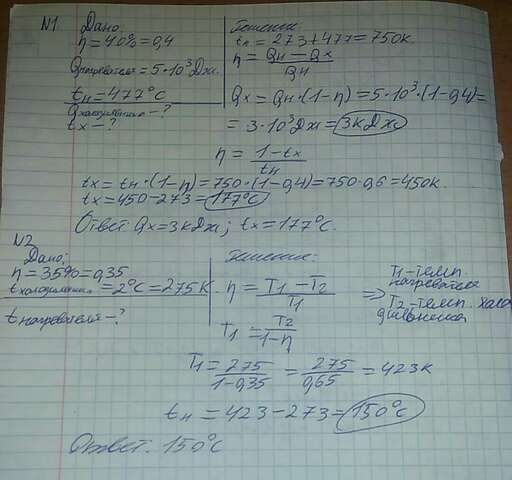 N1. Дано:
η = 40% = 0,4
Qнагревателя = 5·10³Дж.
tн = 477°C
Qхолодильника - ?
tx - ?
Решение:
tн = 273 + 477 = 750K.
η = Qн - Qx / Qн
Qx = Qн·(1-η) = 5·10³·(1-0,4) =
= 3·10³Дж = 3кДж
η = 1-tx / tн
tx = tн·(1-η) = 750·(1-0,4) = 750·0,6 = 450K.
tx = 450-273 = 177°C
Ответ: Qx = 3кДж; tx = 177°C.
N2.
Дано:
η = 35% = 0,35
tхолодильника = 2°C = 275K.
tнагревателя - ?
Решение:
η = T1 - T2 / T1 => T1-темп. нагревателя
T2-темп. холодильника
T1 = T2 / 1-η
T1 = 275 / 1-0,35 = 275 / 0,65 = 423K
tн = 423 - 273 = 150°C
Ответ. 150°C